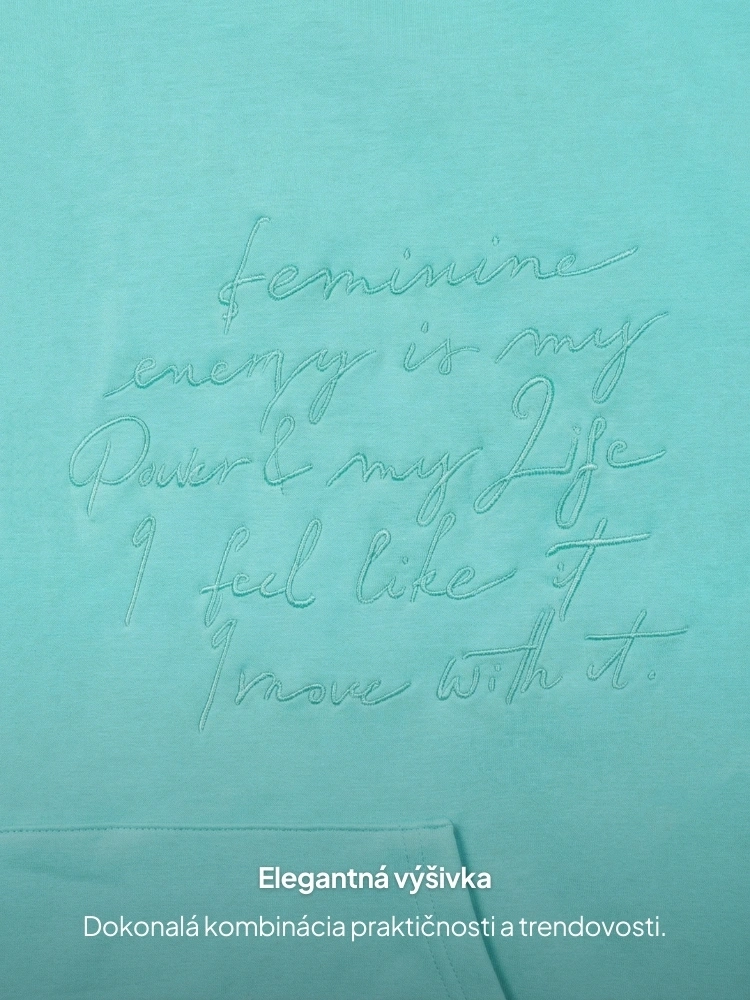 feminine
energy is my
Power & my Life
I feel like it
I move with it.
Elegantná výšivka
Dokonalá kombinácia praktičnosti a trendovosti.